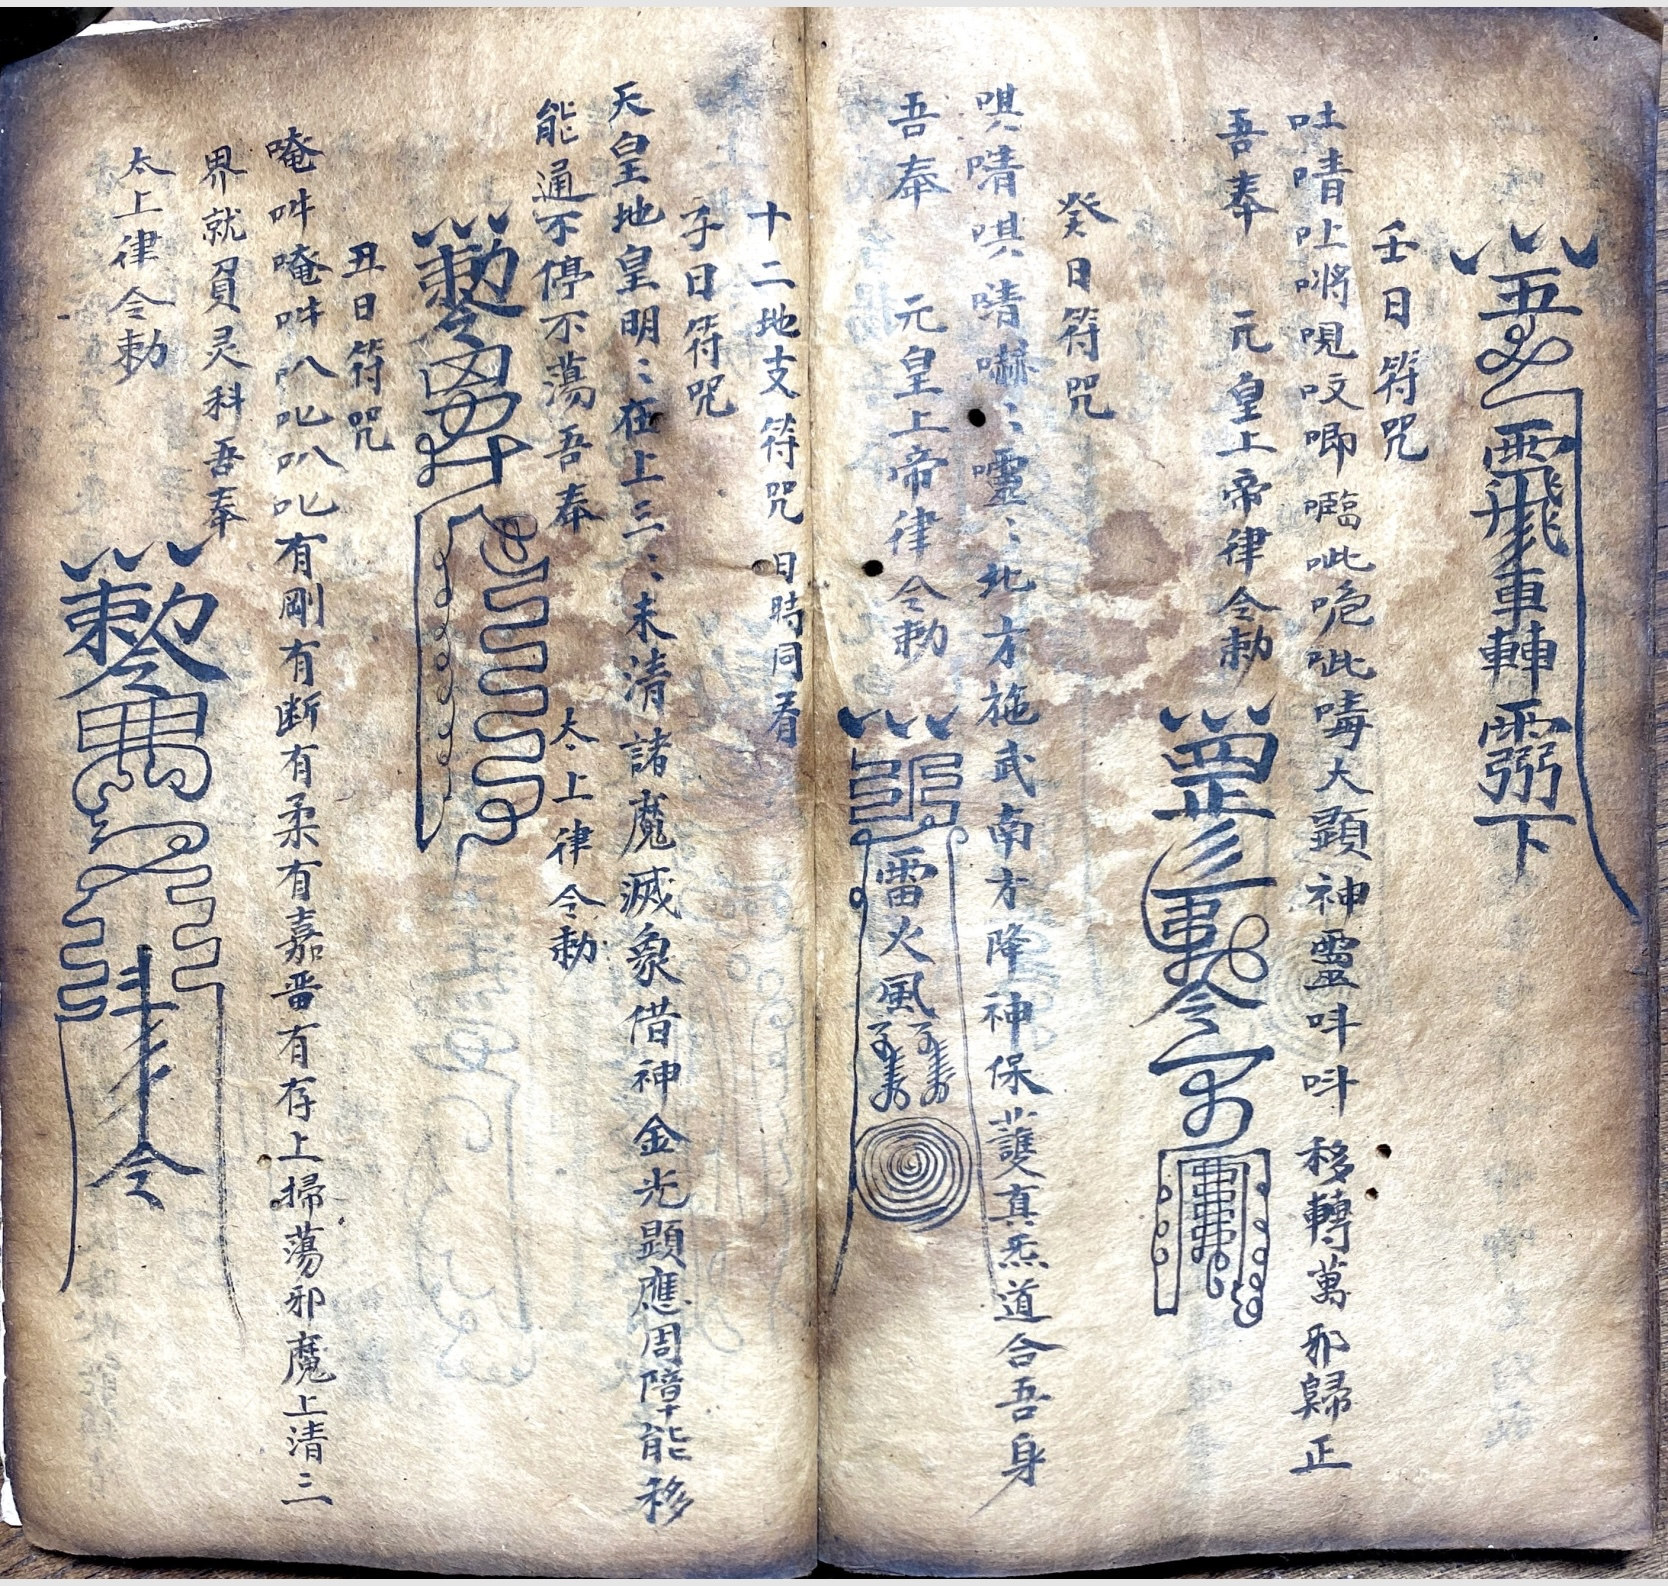 壬日符咒
吐啨吐嘚哯呅唧𡅏呲咆呲嗨大顕神霊呌呌移轉萬邪歸正
吾奉　元皇上帝律令勅
癸日符咒
唭啨唭啨嚇：𡅏：北方拖武南方降神保護真炁道合吾身
吾奉　元皇上帝律令勅
雷火風
十二地支符咒　日時同看
子日符咒
天皇地皇明：在上三：未清諸魔滅象借神金光顕應周障能移
能通不停不蕩吾奉　太上律令勅
丑日符咒
唵吽唵吽叭叱叭叱有剛有断有柔有嘉晋有存上掃蕩邪魔上清三
界就員灵科吾奉
太上律令勅